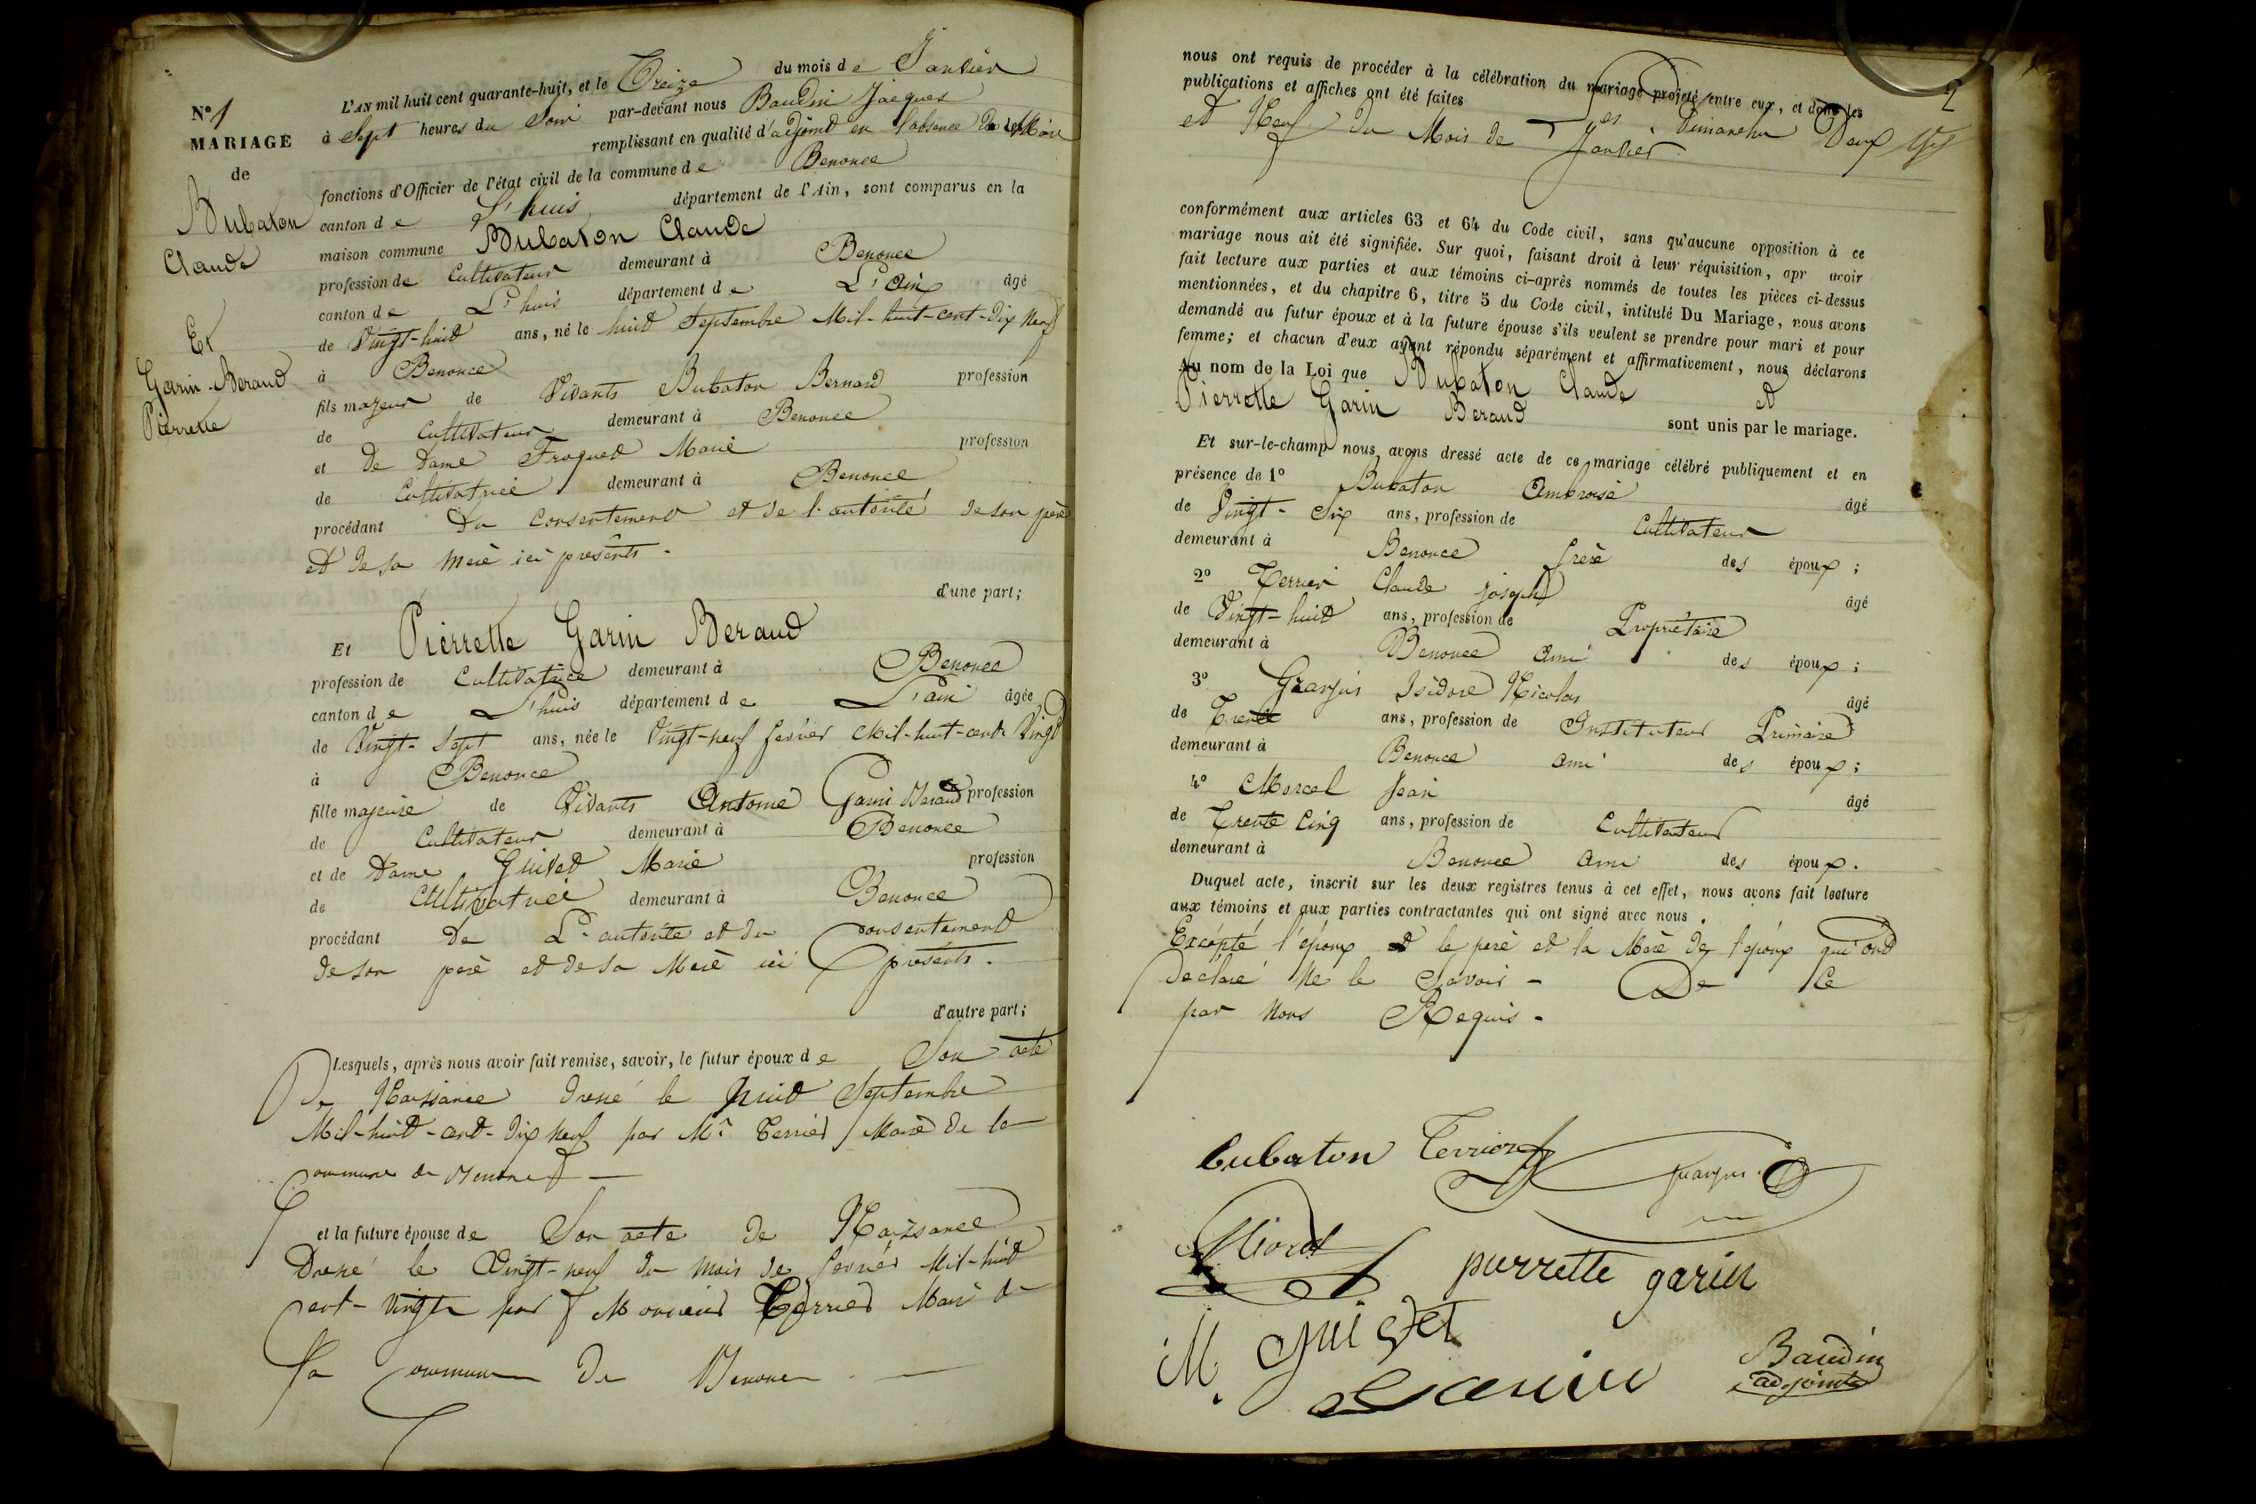 N° 1
MARIAGE
de
Bubaton
Claude
Et
Garin-Beraud
Pierrette
L'AN mil huit cent quarante-huit, et le Treize du mois de Janvier
à Sept heures du Soir par-devant nous Baudin Jacques
remplissant en qualité d'adjoint en l'absence de Maire
fonctions d'Officier de l'état civil de la commune de Benonce
canton de L'huis département de l'Ain, sont comparus en la
maison commune Bubaton Claude
profession de Cultivateur demeurant à Benonce
canton de L'huis département de L'Ain âgé
de Vingt-huit ans, né le huit Septembre Mil-huit-cent-dix Neuf
à Benonce
fils majeur de Vivants Bubaton Bernard profession
de Cultivateur demeurant à Benonce
et de Dame Froquet Marie profession
de Cultivatrice demeurant à Benonce
procédant du Consentement et de l'autorité de son père
et de sa Mère ici présents.
d'une part;
Et Pierrette Garin Beraud
profession de Cultivatrice demeurant à Benonce
canton de L'huis département de L'ain âgée
de Vingt-Sept ans, née le Vingt-neuf fevrier Mil-huit-cent Vingt
à Benonce
fille majeure de Vivants Antoine Garin Beraud profession
de Cultivateur demeurant à Benonce
et de Dame Guivet Marie profession
de Cultivatrice demeurant à Benonce
procédant De L'autorité et du Consentement
de son père et de sa Mère ici présents.
d'autre part;
Lesquels, après nous avoir fait remise, savoir, le futur époux de Son acte
De Naissance dressé le huit Septembre
Mil-huit-cent-dix Neuf par Mr Terrier Maire de la
Commune de Benonce
et la future épouse de Son acte de Naissance
Dressé le Vingt-neuf du Mois de fevrier Mil-huit
cent-vingt par Monsieur Terrier Maire de
la Commune De Benonce
2
nous ont requis de procéder à la célébration du mariage projeté entre eux, et dont les
publications et affiches ont été faites les Dimanches Deux
et Neuf du Mois de Janvier
conformément aux articles 63 et 64 du Code civil, sans qu'aucune opposition à ce
mariage nous ait été signifiée. Sur quoi, faisant droit à leur réquisition, apr avoir
fait lecture aux parties et aux témoins ci-après nommés de toutes les pièces ci-dessus
mentionnées, et du chapitre 6, titre 5 du Code civil, intitulé Du Mariage, nous avons
demandé au futur époux et à la future épouse s'ils veulent se prendre pour mari et pour
femme; et chacun d'eux ayant répondu séparément et affirmativement, nous déclarons
Au nom de la Loi que Bubaton Claude et
Pierrette Garin Beraud sont unis par le mariage.
Et sur-le-champ nous avons dressé acte de ce mariage célébré publiquement et en
présence de 1° Bubaton Ambroise âgé
de Vingt-Six ans, profession de Cultivateur
demeurant à Benonce frère des époux;
2° Terrier Claude joseph âgé
de Vingt-huit ans, profession de Propriétaire
demeurant à Benonce ami des époux;
3° Isidore Nicolas âgé
de Trente ans, profession de Instituteur Primaire
demeurant à Benonce ami des époux;
4° Marcel Jean âgé
de Trente Cinq ans, profession de Cultivateur
demeurant à Benonce ami des époux.
Duquel acte, inscrit sur les deux registres tenus à cet effet, nous avons fait lecture
aux témoins et aux parties contractantes qui ont signé avec nous.
Excepté l'époux et le père et la Mère de l'époux qui ont
Declaré Ne le Savoir - De Ce
par Nous Requis.
bubaton Terrier
pierrette garin
M. guivet
garin
Baudin
adjoint